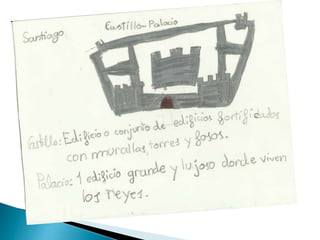 Santiago
Castillo-Palacio
Castillo: Edificio o conjunto de edificios fortificados
con murallas, torres y fosos.
Palacio: 1 edificio grande y lujoso donde viven
los reyes.